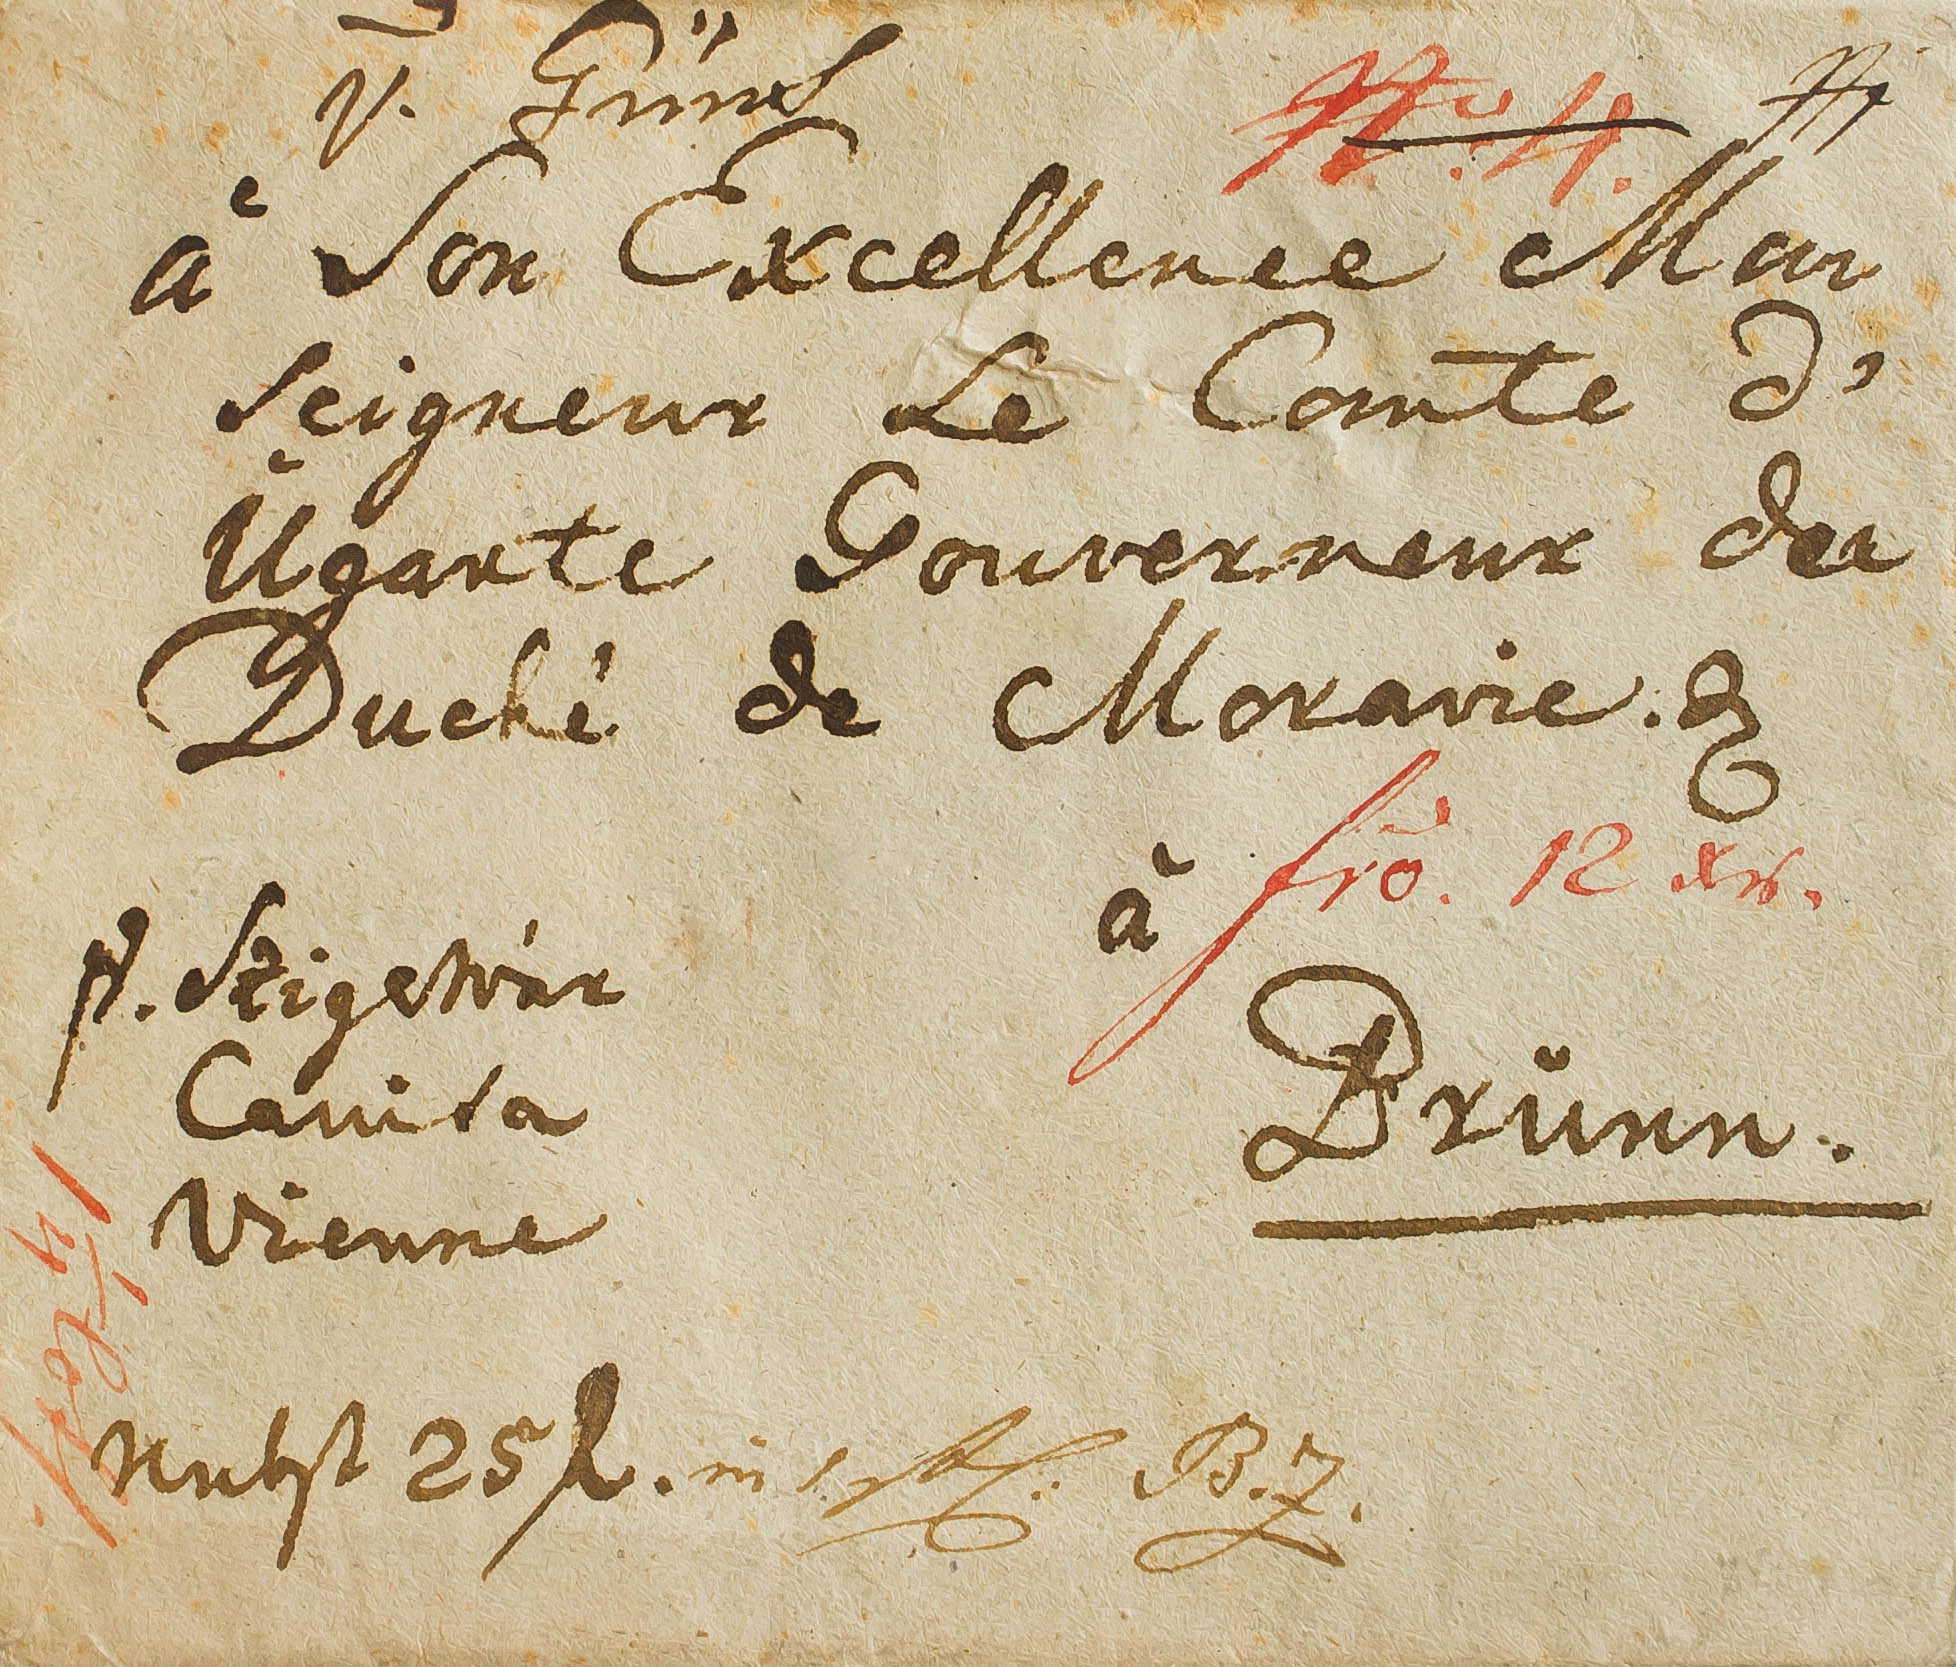 v. Güns
N.º 4.
à Son Excellence Mon
Seigneur Le Comte d'
Ugarte Gouverneur du
Duché de Moravie.
frõ. 12 xr.
à
p. Szigetvár
Canisa
Vienne
Brünn.
Nebst 25 f. in B.Z.